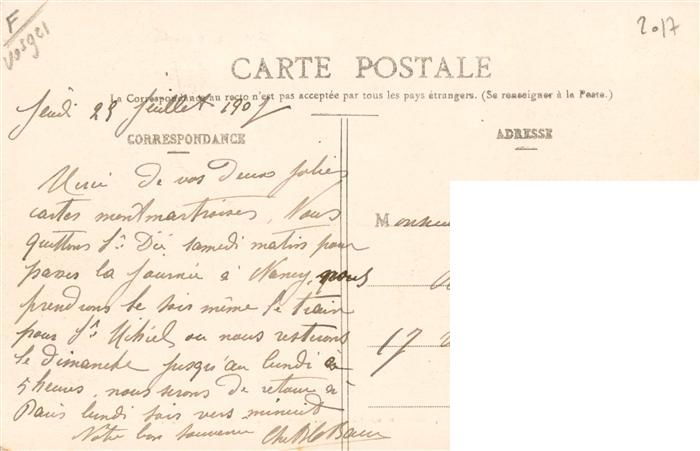 F
Vosges
2017
CARTE POSTALE
La Correspondance au recto n'est pas acceptée par tous les pays étrangers. (Se renseigner à la Poste.)
Jeudi 25 Juillet 1907
CORRESPONDANCE
ADRESSE
Merci de vos deux jolies
cartes montmartroises. Nous
quittons St Dié samedi matin pour
passer la journée à Nancy, nous
prendrons le soir même le train
pour St Mihiel ou nous resterons
le dimanche jusqu'au lundi à
5 heures, nous serons de retour à
Paris lundi soir vers minuit
Votre bon souvenir
Monsieur
17